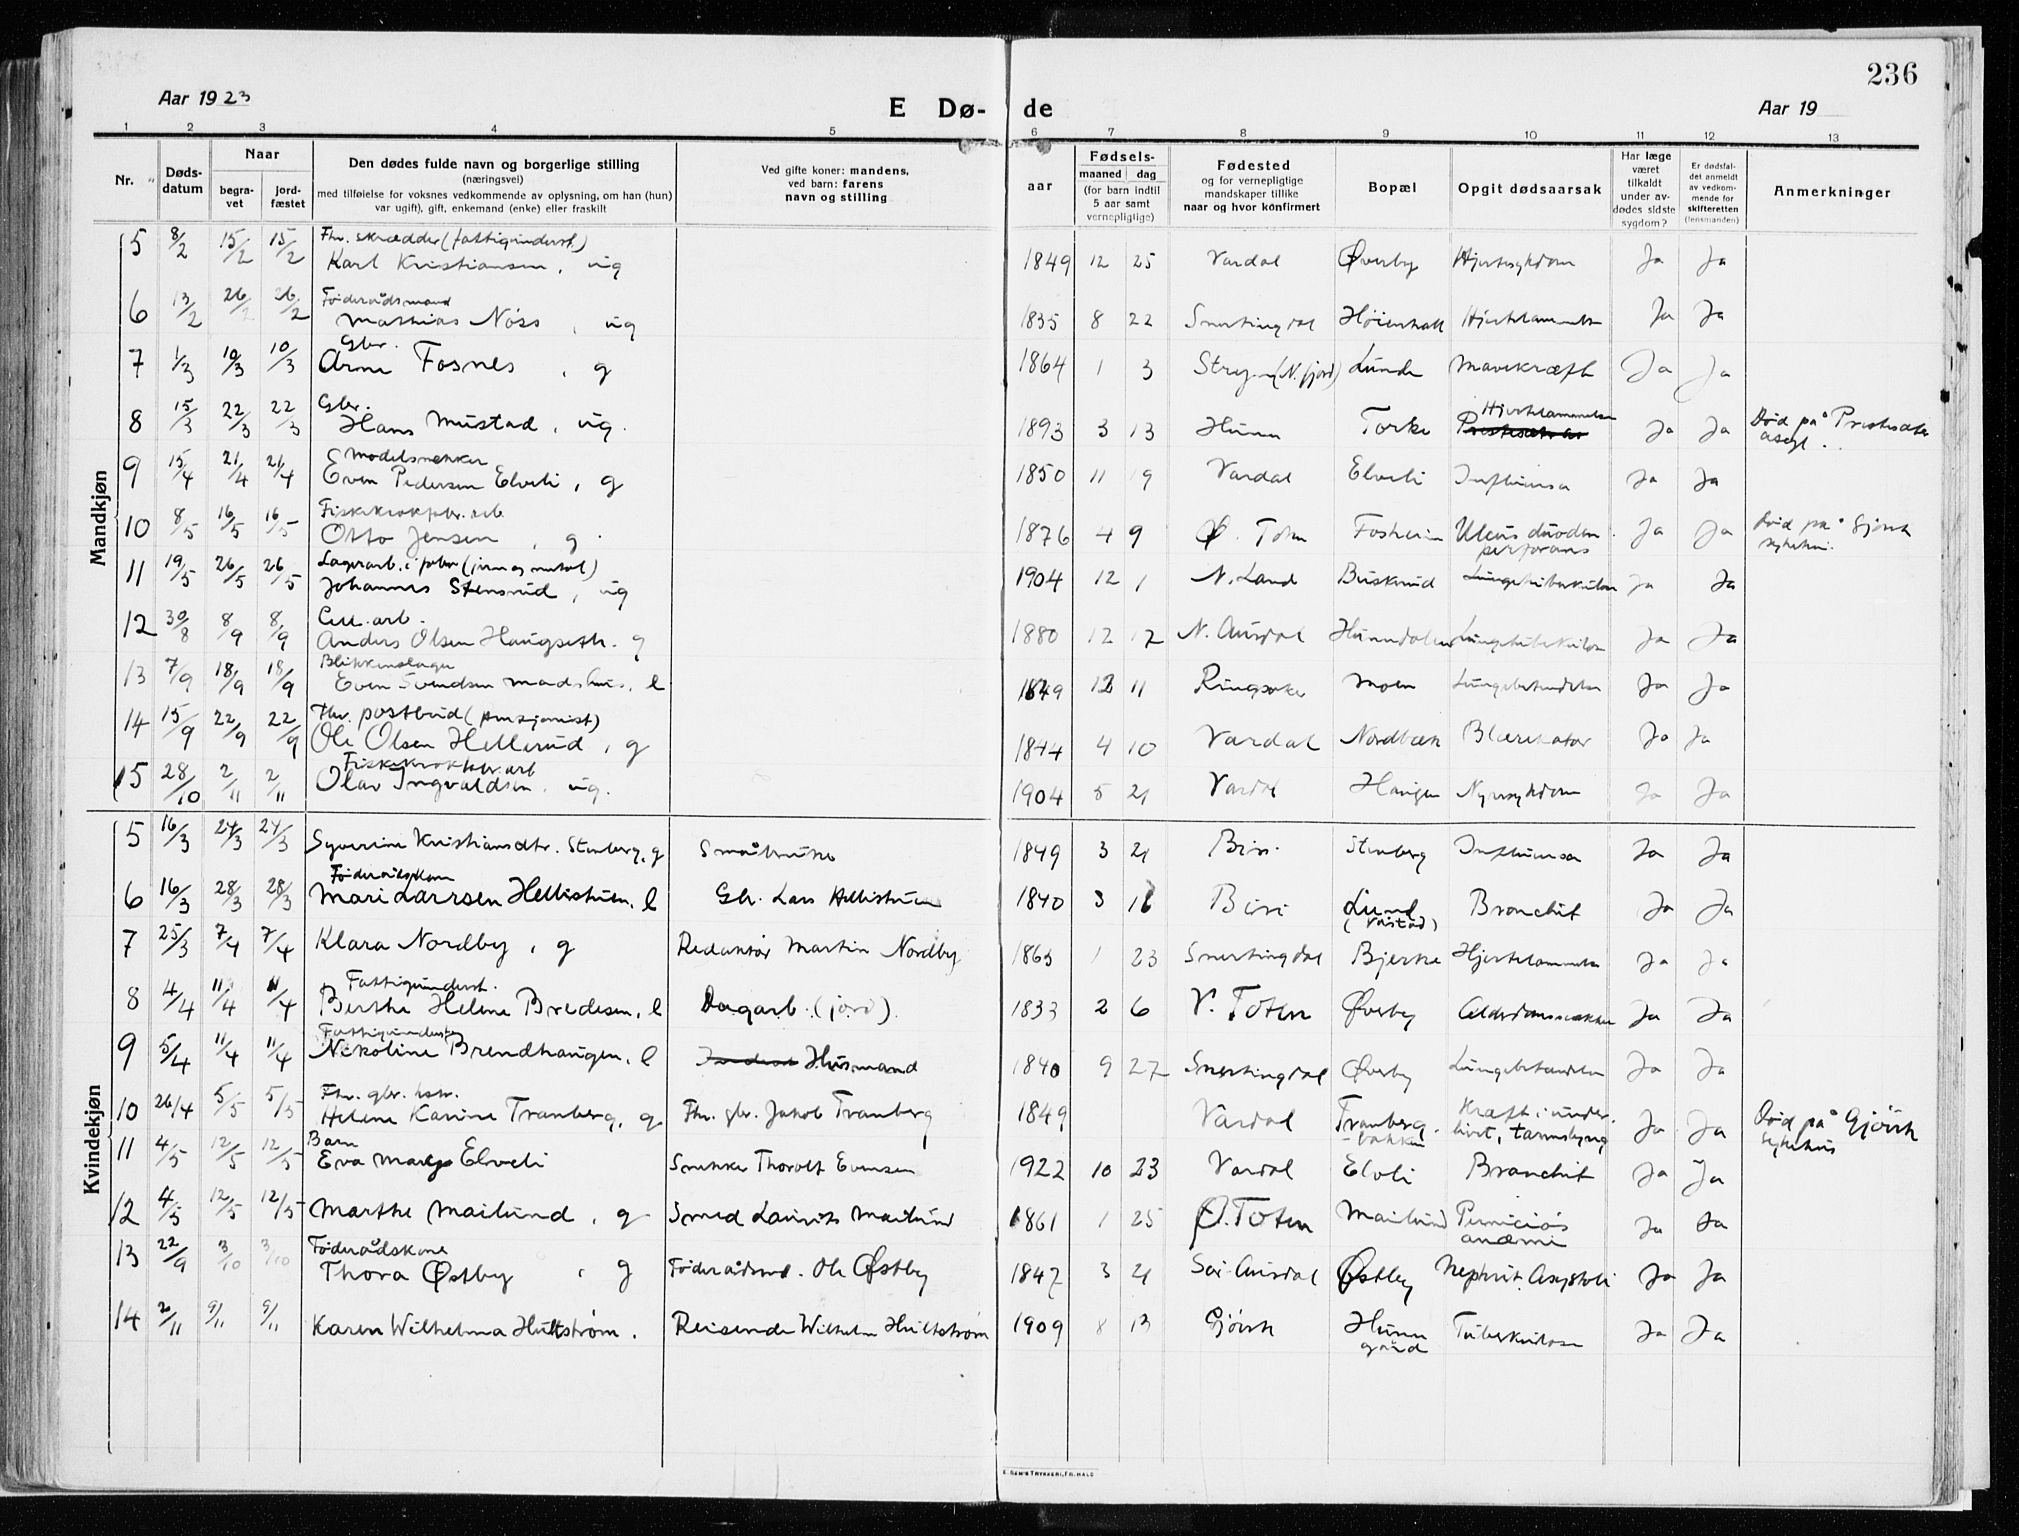 236
Aar 1923
E Dø- de
Aar 19
1 2 3 4 5 6 7 8 9 10 11 12 13
Nr.
Døds-
datum
Naar
begra-
vet
jord-
fæstet
Den dødes fulde navn og borgerlige stilling
(næringsvei)
med tilføielse for voksnes vedkommende av oplysning, om han (hun)
var ugift, gift, enkemand (enke) eller fraskilt
Ved gifte koner: mandens,
ved barn: farens
navn og stilling
Fødsels-
aar
maaned dag
(for barn indtil
5 aar samt
vernepligtige)
Fødested
og for vernepligtige
mandskaper tillike
naar og hvor konfirmert
Bopæl
Opgit dødsaarsak
Har læge
været
tilkaldt
under av-
dødes sidste
sygdom?
Er dødsfal-
det anmeldt
av vedkom-
mende for
skifteretten
(lensmanden)
Anmerkninger
Mandkjøn
5 8/2 15/2 15/2 Fhv. skrædder (fattigunderst.)
Karl Kristiansen, ug 1849 12 25 Vardal Øverby Hjertesykdom Ja Ja
6 13/2 26/2 26/2 Føderådsmand
Mathias Nöss, ug 1835 8 22 Snertingdal Hjertelammelse Ja Ja
7 1/3 10/3 10/3 Gbr.
Arne Fosnes, g 1864 1 3 Stryn (N.fjord) Lunde Mavekræft Ja Ja
8 15/3 22/3 22/3 Gbr.
Hans Mustad, ug. 1893 3 13 Hunn Torke Hjertelammelse Ja Ja Död på Prestesæter
asyl.
9 15/4 21/4 21/4 Modelsnekker
Even Pedersen Elveli, g 1850 11 19 Vardal Elveli Influensa Ja Ja
10 8/5 16/5 16/5 Fiskekrokfabr. arb
Otto Jensen, g. 1876 4 9 Ø. Toten Fosheim Ulcus duoden.
perforans Ja Ja Död på Gjövik
sykehus.
11 19/5 26/5 26/5 Lagerarb. i fabr (jern og metal)
Johannes Stensrud, ug 1904 12 1 N. Land Buskrud Lungetuberkulose Ja Ja
12 30/8 8/9 8/9 Cell. arb.
Anders Olsen Haugseth. g 1880 12 17 N. Aurdal Hunndalen Lungetuberkulose Ja Ja
13 7/9 18/9 18/9 Blikkenslager
Even Svendsen Madshus, e 1849 12 11 Ringsaker Moen Lungebetændelse Ja Ja
14 15/9 22/9 22/9 Fhv. postbud (pensjonist)
Ole Olsen Hellerud, g 1844 4 10 Vardal Nordbæk Blærekatar Ja Ja
15 28/10 2/11 2/11 Fiskekrokfabr. arb
Olav Ingvaldsen, ug. 1904 5 21 Vardal Haugen Nyresykdom Ja Ja
Kvindekjøn
5 16/3 24/3 24/3 Syverine Kristiansdtr. Stenberg, g Småbruker 1849 3 21 Biri Stenberg Influensa Ja Ja
6 16/3 28/3 28/3 Føderådskone
Mari Larrsen Hellistuen, e Gbr. Lars Hellistuen 1840 3 Biri Lund
(Vastad) Bronchit Ja Ja
7 25/3 7/4 7/4 Klara Nordby, g Redaktør Martin Nordby 1865 1 23 Snertingdal Bjerke Hjertelammelse Ja Ja
8 4/4 11/4 11/4 Fattigunderst.
Berthe Helene Bredesen, e Dagarb. (jord). 1833 2 6 V. Toten Øverby Alderdomssvækkelse Ja Ja
9 5/4 11/4 11/4 Fattigunderst
Nikoline Brendhaugen, e Husmand 1840 9 27 Snertingdal Øverby Lungebetændelse Ja Ja
10 26/4 5/5 5/5 Fhv. gbr. hstr.
Helene Karine Tranberg, g Fhv. gbr. Jakob Tranberg 1849 Vardal Tranberg-
bakken Kræft i under-
livet, Ja Ja Död på Gjövik
sykehus
11 4/5 12/5 12/5 Barn
Eva Elveli Snekker Thorolf Evensen 1922 10 23 Vardal Elveli Bronchit Ja Ja
12 4/5 12/5 12/5 Marthe Mailund, g Smed Laurits Mailund 1861 1 25 Ø. Toten Mailund Perniciös
anæmi Ja Ja
13 22/9 3/10 3/10 Föderådskone
Thora Østby, g Föderådsmd. Ole Østby 1847 3 21 Sør Aurdal Østby Nephrit. Asystoli Ja Ja
14 2/11 9/11 9/11 Karen Wilhelma Hultstrøm. Reisende Wilhelm Hultstrøm 1909 8 13 Gjövik Hunn
gård Tuberkulose Ja Ja